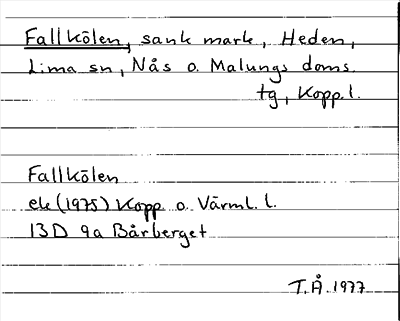 Fallkölen, sank mark, Heden,
Lima sn, Nås o. Malungs doms.
tg, Kopp. l.
Fallkölen
ek (1975) Kopp o. Värml. l.
13D 9a Bårberget
T.Å. 1977